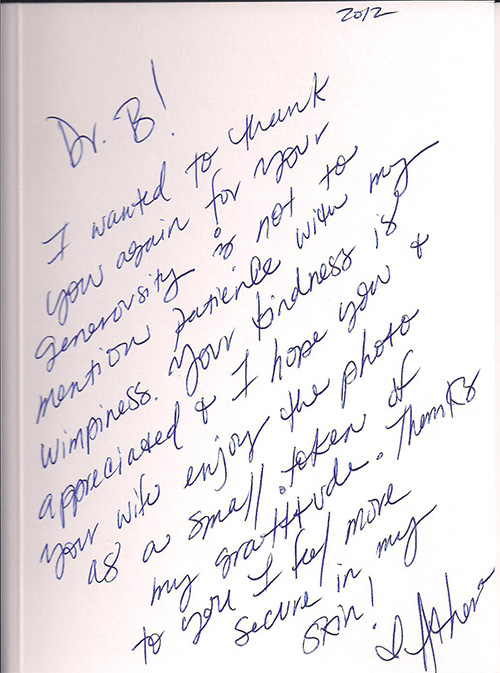 2012
Dr. B!
I wanted to thank
you again for your
generousity & not to
mention patience with my
wimpiness. Your kindness is
appreciated & I hope you &
your wife enjoy the photo
as a small token of
my gratitude. Thanks
to you I feel more
secure in my
skin!